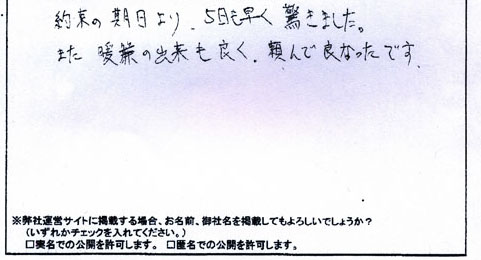 約束の期日より、5日も早く驚きました。
また 暖簾の出来も良く、頼んで良かったです
※弊社運営サイトに掲載する場合、お名前、御社名を掲載してもよろしいでしょうか？
（いずれかチェックを入れてください。）
□実名での公開を許可します。 □匿名での公開を許可します。